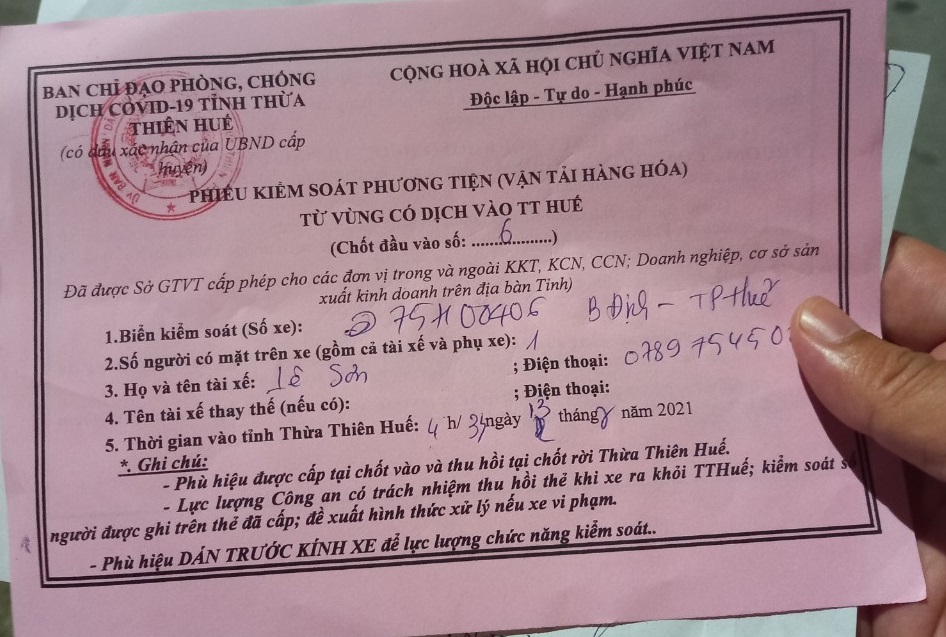 BAN CHỈ ĐẠO PHÒNG, CHỐNG
DỊCH COVID-19 TỈNH THỪA
THIÊN HUẾ
(có dấu xác nhận của UBND cấp
huyện)
CỘNG HOÀ XÃ HỘI CHỦ NGHĨA VIỆT NAM
Độc lập - Tự do - Hạnh phúc
PHIẾU KIỂM SOÁT PHƯƠNG TIỆN (VẬN TẢI HÀNG HÓA)
TỪ VÙNG CÓ DỊCH VÀO TT HUẾ
(Chốt đầu vào số: .......6..........)
Đã được Sở GTVT cấp phép cho các đơn vị trong và ngoài KKT, KCN, CCN; Doanh nghiệp, cơ sở sản
xuất kinh doanh trên địa bàn Tỉnh)
1.Biển kiểm soát (Số xe): 75H 00406 B Định - TP Huế
2.Số người có mặt trên xe (gồm cả tài xế và phụ xe): 1
3. Họ và tên tài xế: Lê Sơn ; Điện thoại: 0789 754 50
4. Tên tài xế thay thế (nếu có): ; Điện thoại:
5. Thời gian vào tỉnh Thừa Thiên Huế: 4 h/ ngày 13 tháng năm 2021
*. Ghi chú:
- Phù hiệu được cấp tại chốt vào và thu hồi tại chốt rời Thừa Thiên Huế.
- Lực lượng Công an có trách nhiệm thu hồi thẻ khi xe ra khỏi TTHuế; kiểm soát
người được ghi trên thẻ đã cấp; đề xuất hình thức xử lý nếu xe vi phạm.
- Phù hiệu DÁN TRƯỚC KÍNH XE để lực lượng chức năng kiểm soát..